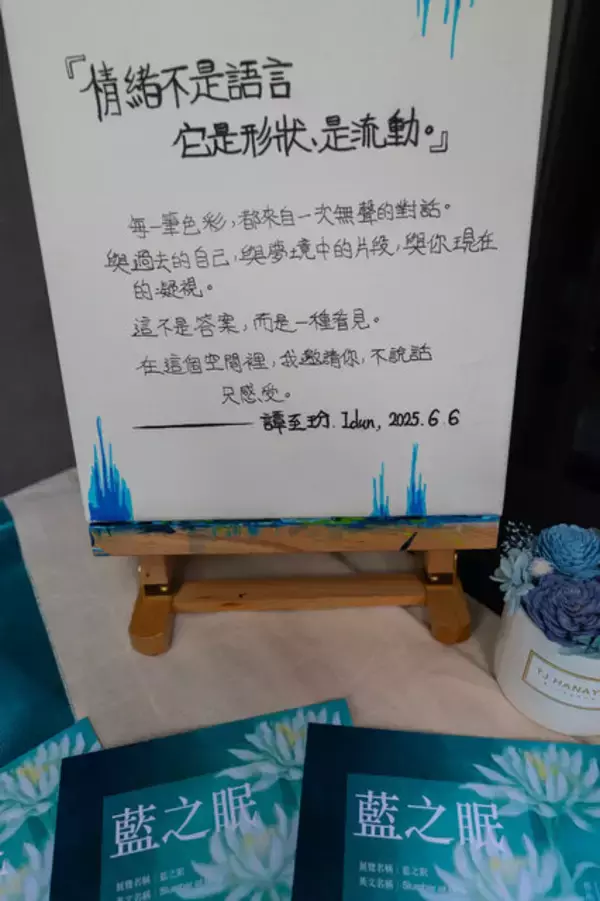 『情緒不是語言
它是形狀、是流動。』
每一筆色彩，都來自一次無聲的對話。
與過去的自己，與夢境中的片段，與你現在
的凝視。
這不是答案，而是一種看見。
在這個空間裡，我邀請你，不說話
只感受。
譚至玢. Idun, 2025.6.6
T.J HANAY
藍之眠
展覽名稱｜藍之眠
英文名稱｜Slumber of
藍之眠
展覽名稱｜藍之眠
英文名稱｜Slumber